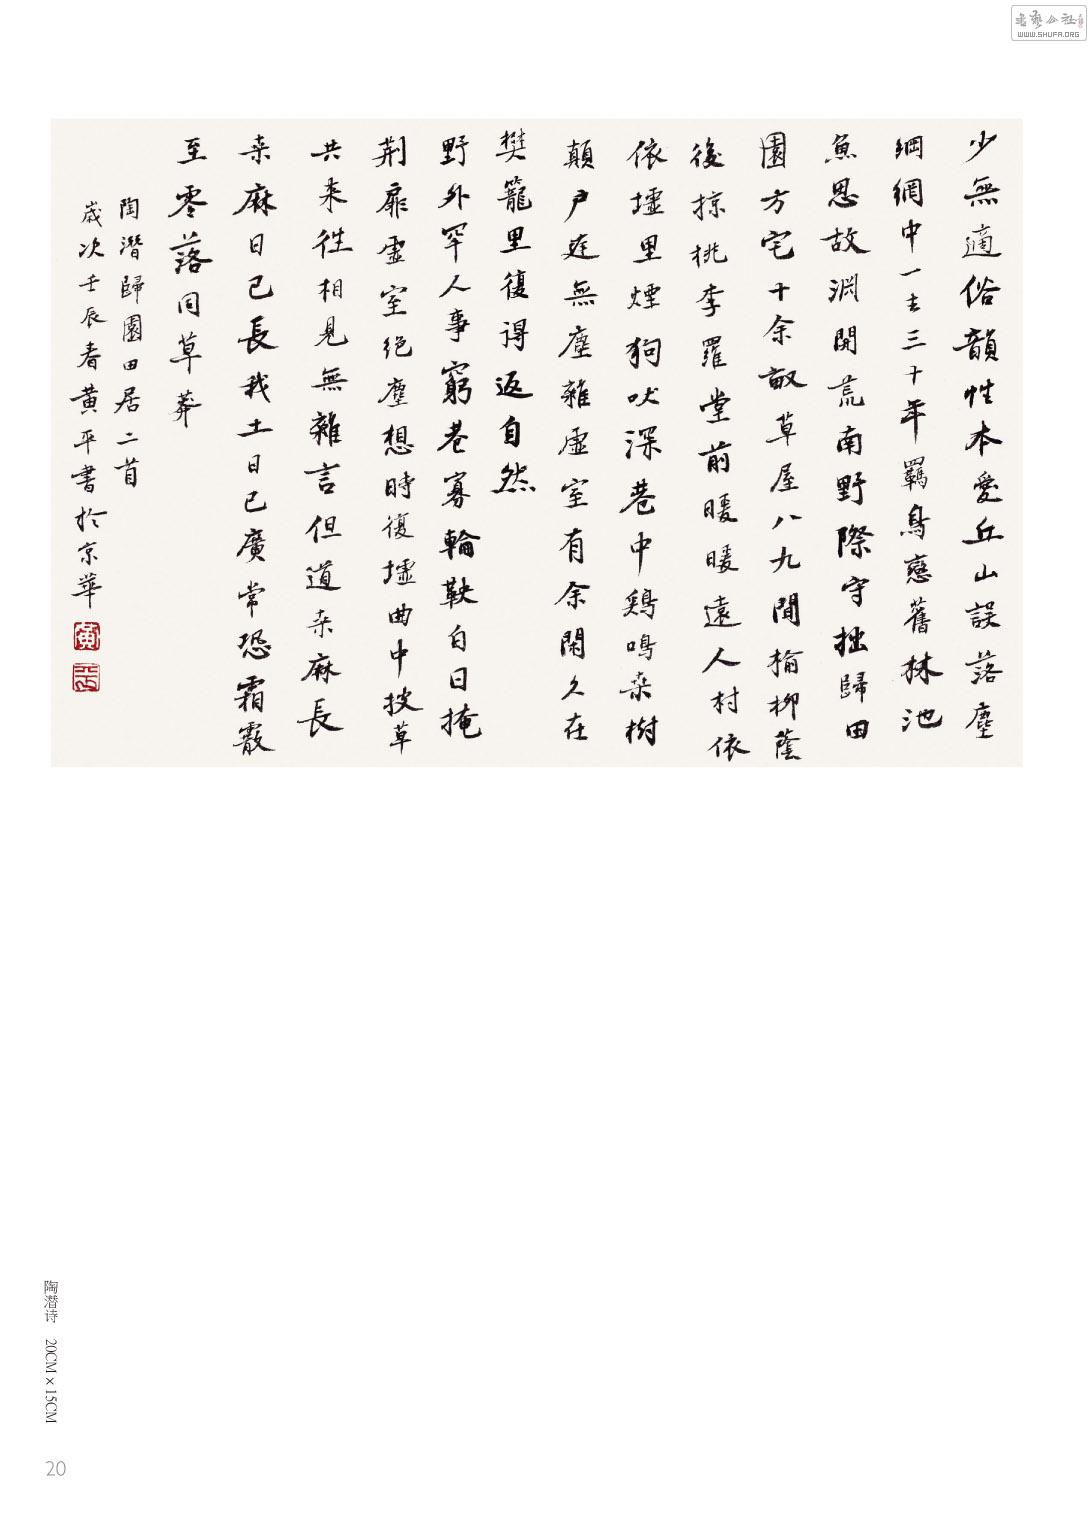 少無適俗韻性本愛丘山誤落塵
綱網中一去三十年羈鳥戀舊林池
魚思故淵開荒南野際守拙歸田
園方宅十余畝草屋八九間榆柳蔭
後掠桃李羅堂前暖暖遠人村依
依墟里煙狗吠深巷中鷄鳴桑樹
顛戶庭無塵雜虛室有余閑久在
樊籠里復得返自然
野外罕人事窮巷寡輪鞅白日掩
荊扉虛室絕塵想時復墟曲中披草
共來往相見無雜言但道桑麻長
桑麻日已長我土日已廣常恐霜霰
至零落同草莽
陶潛歸園田居二首
歲次壬辰春黃平書於京華
黃
平
陶潜诗 20CM×15CM
20
WWW.SHUFA.ORG